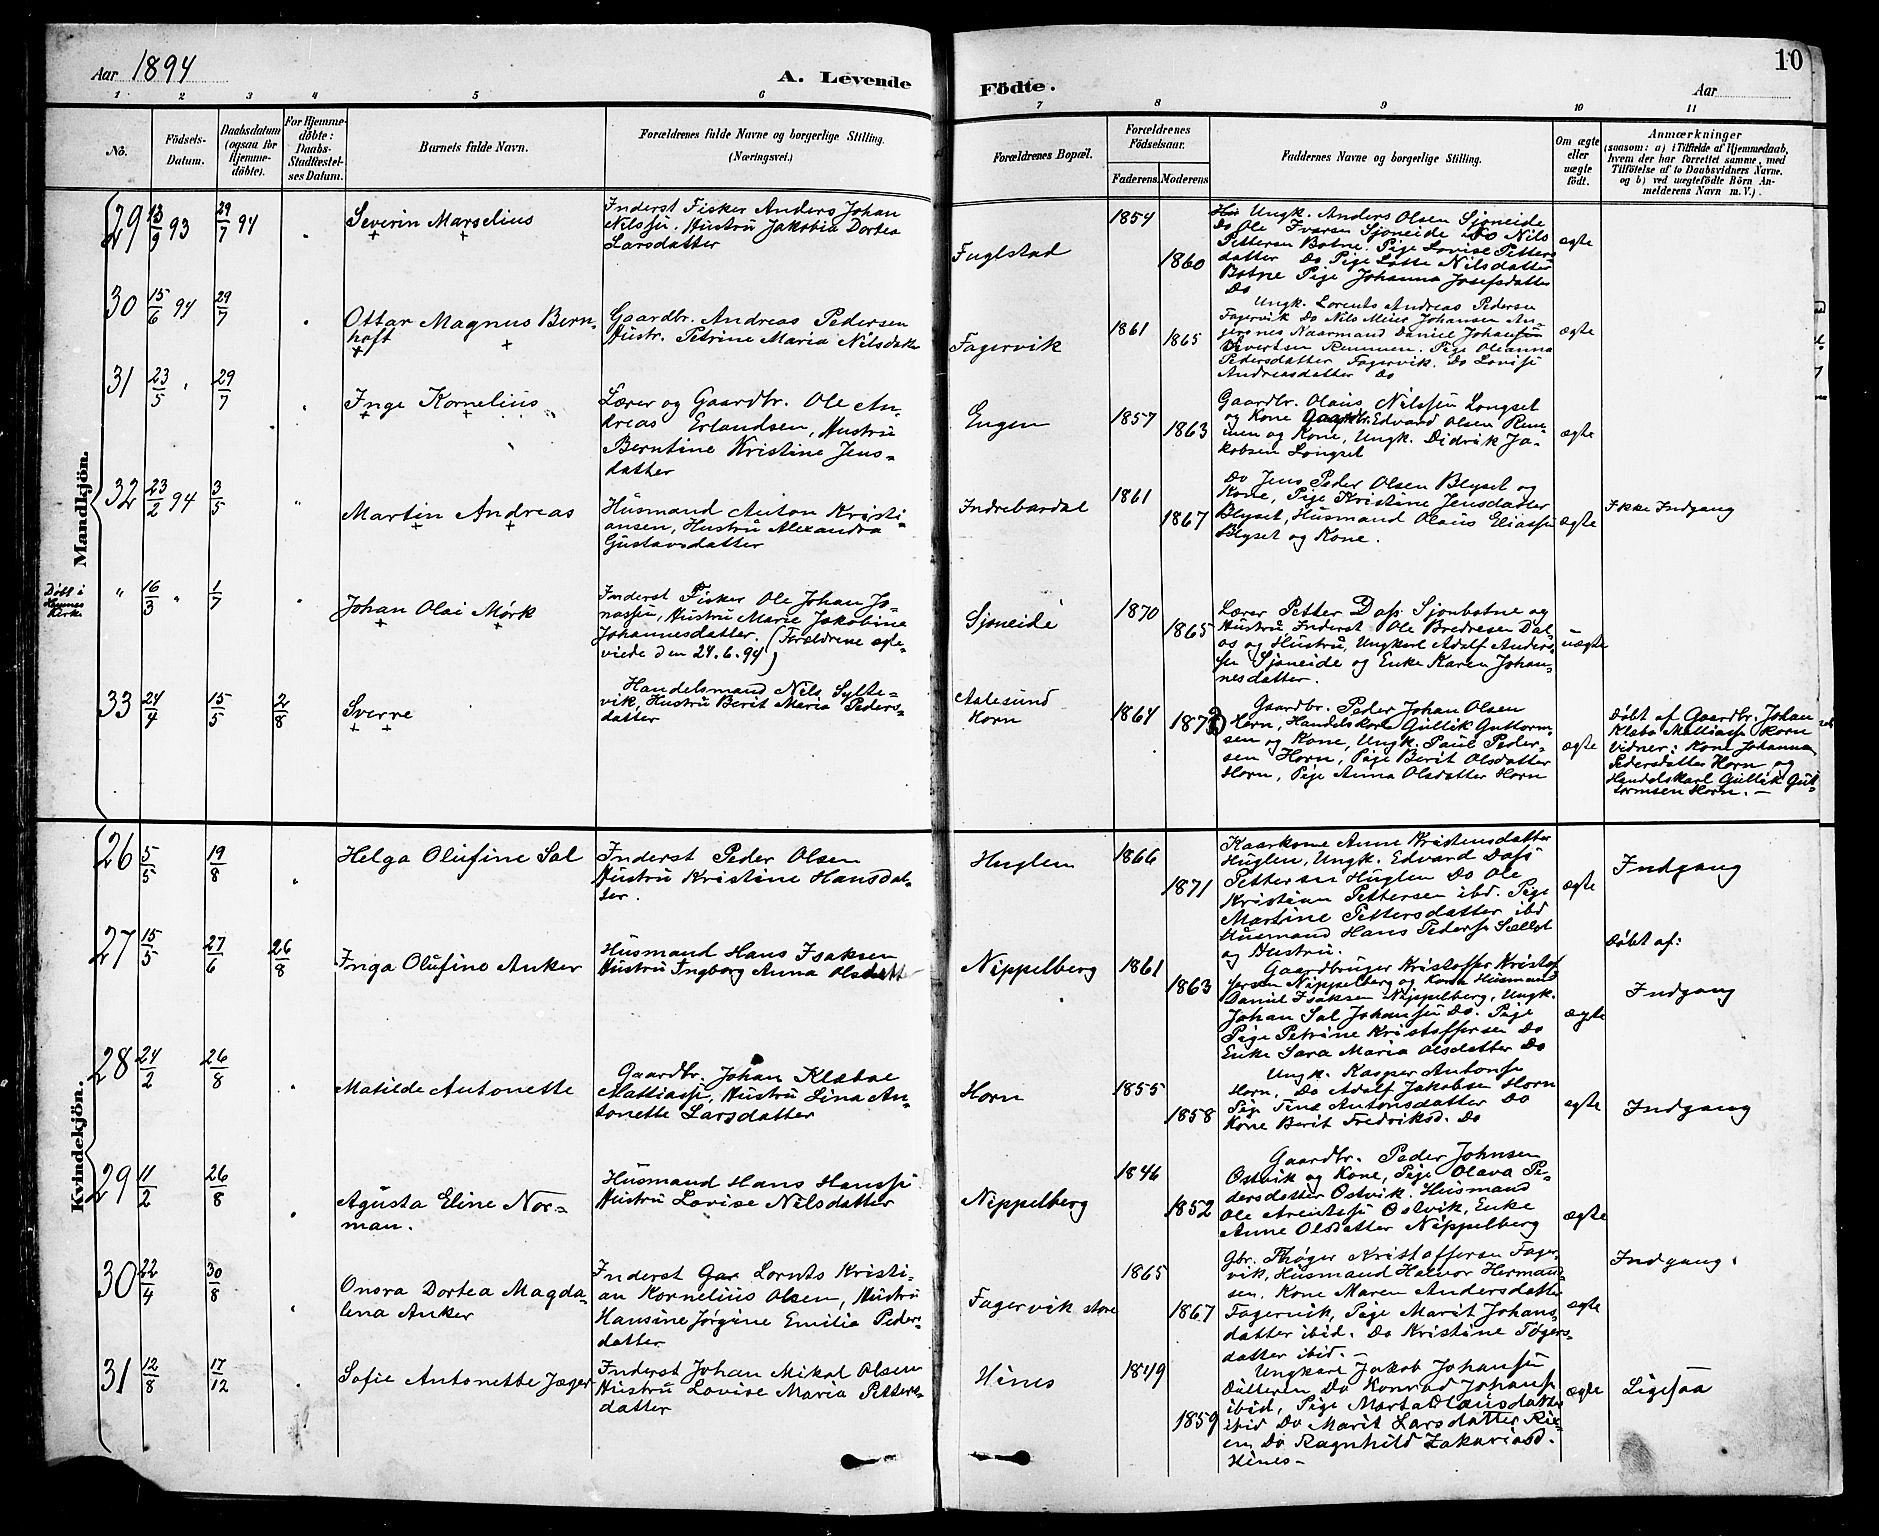 Aar 1894
A. Levende
Födte.
Aar
10
1 2 3 4 5 6 7 8 9 10 11
No.
Födsels-
Datum.
Daabsdatum
(ogsaa for
Hjemme-
döbte).
For Hjemme-
döbte:
Daabs-
Stadfæstel-
ses Datum.
Barnets fulde Navn.
Forældrenes fulde Navne og borgerlige Stilling.
(Næringsvei.)
Forældrenes Bopæl.
Forældrenes
Födselsaar.
Faderens. Moderens
Faddernes Navne og borgerlige Stilling.
Om ægte
eller
uægte
födt.
Anmærkninger
(saasom: a) i Tilfælde af Hjemmedaab,
hvem der har forrettet samme, med
Tilföielse af to Daabsvidners Navne.
og b) ved uægtefödte Börn An-
melderens Navn m. V.)
Mandkjön.
29 13/9 93 29/7 94 "
Severin Marselius
Inderst Fisker Anders Johan
Nilssen. Hustru Jakobia Dortea
Larsdatter
Fuglstad
1854
1860
Ungk. Anders Olsen Sjoneide
Do Ole Ivarsen Sjoneide Do Nils
Pettersen Botne. Pige Lovise Petters
datter Do Pige Lotte Nilsdatter
Botne Pige Johanna Josefsdatter
Do
ægte
30 15/6 94 29/7 "
Ottar Magnus Bern-
haft
Gaardbr. Andreas Pedersen
Hustr. Petrine Maria Nilsdatt
Fagervik
1861
1865
Ungk. Lorents Andreas Pedersen
Fagervik Do Nils Meier Johansen An-
gersnes Naarmand Daniel Johan
Sivertsen Remmen. Pige Oleanna
Pedersdatter Fagervik. Do Lovise
Andreasdatter Do
ægte
31 23/5 " 29/7 "
Inge Kornelius
Lærer og Gaardbr. Ole An-
dreas Erlandsen, Hustru
Berntine Kristine Jens-
datter
Engen
1857
1863
Gaardbr. Olaus Nilssen Longset
og Kone Gaardbr. Edvard Olsen Rem-
men og Kone, Ungk. Didrik Ja-
kobsen Longset
ægte
32 23/2 94 3/5 "
Martin Andreas
Husmand Anton Kristi-
ansen, Hustru Alexandra
Gustavsdatter
Indrebardal
1861
1867
Do Jens Peder Olsen Blyset og
Kone, Pige Kristine Jensdatter
Blyset, Husmand Olaus Eliassen
Blyset og Kone.
ægte
Ikke Indgang
Døbt i
Hemnes
Kirke
" 16/3 " 1/7 "
Johan Olai Mørk
Inderst Fisker Ole Johan Jo-
nassen, Hustru Marie Jakobine
Johannesdatter. (Forældrene ægte-
viede den 24.6.94)
Sjoneide
1870
1865
Lærer Petter Dass Sjonbotne og
Hustru Inderst Ole Bredresen Dal-
os og Hustru, Ungkarl Adolf Anders-
sen Sjoneide og Enke Karen Johan-
nesdatter.
uægte
33 24/4 15/5 2/8
Sverre
Handelsmand Nils Sylte-
vik, Hustru Berit Maria Peders-
datter
Aalesund
Horn
1864
1873
Gaardbr. Peder Johan Olsen
Horn, Handelskarl Gullik Guttorm-
sen og Kone, Ungk. Paul Peder-
sen Horn, Pige Berit Olsdatter
Horn, Pige Anna Olsdatter Horn
ægte
Døbt af Gaardbr. Johan
Klæbo Mattiass Horn
Vidner: Kone Johanna
Pedersdatter Horn og
Handelskarl Gullik Gut-
tormsen Horn. —
Kvindekjön.
26 5/5 19/8 "
Helga Olufine Sal
Inderst Peder Olsen
Hustru Kristine Hansdat-
ter.
Huglen
1866
1871
Kaarkone Anne Kristensdatter
Huglen, Ungk. Edvard Dass
Pettersen Huglen Do Ole
Kristian Pettersen ibd. Pige
Martine Pettersdatter ibd
Husmand Hans Peders
og Hustru.
ægte
Indgang
27 15/5 27/6 26/8
Inga Olufine Anker
Husmand Hans Isaksen
Hustru Ingborg Anna Olsdatt
Nippelberg
1861
1863
Gaardbruger Kristoffer Kristof
fersen Nippelberg og Kone Husmand
Daniel Isaksen Nippelberg, Ungk.
Johan Sal Johansen Do. Pige
Pige Petrine Kristoffersen Do
Enke Sara Maria Olsdatter Do
ægte
Døbt af:
Indgang
28 24/2 26/8 "
Matilde Antonette
Gaardbr. Johan Klæboe
Mattiass, Hustru Lina An-
tonette Larsdatter
Horn
1855
1858
Ungk. Kasper Antons
Horn. Do Adolf Jakobsen Horn
Pige Tina Antonsdatter Do
Kone Berit Fredriksd. Do
ægte
Indgang
29 11/2 26/8 "
Agusta Eline Nor-
man.
Husmand Hans Hanss
Hustru Lovise Nilsdatter
Nippelberg
1846
1852
Gaardbr. Peder Johnsen
Ostvik og Kone, Pige Olava Pe-
dersdatter Ostvik. Husmand
Ole Arentss Ostvik, Enke
Anne Olsdatter Nippelberg
ægte
30 22/4 30/8 "
Onora Dortea Magda-
lena Anker
Inderst Gar Lornts Kristi-
an Kornelius Olsen, Hustru
Hansine Jørgine Emilia Peders-
datter
Fagervik store
1865
1867
Gbr. Thøger Kristoffersen Fager-
vik, Husmand Halvor Hermand-
sen. Kone Maren Andersdatter
Fagervik, Pige Marit Johans-
datter ibid. Do Kristine Tøgers-
datter ibid. —
ægte
Indgang.
31 12/8 17/12 "
Sofie Antonette Jæger
Inderst Johan Mikal Olsen
Hustru Lovise Maria Petters-
datter
Hines
1849
1859
Ungkarl Jakob Johansen
Dølteren Do Konrad Johans
ibid, Pige Marta Olausdatter
ibid Do Marit Larsdatter
Do Ragnhild Zakariasd.
Hines —
ægte
Ligesaa